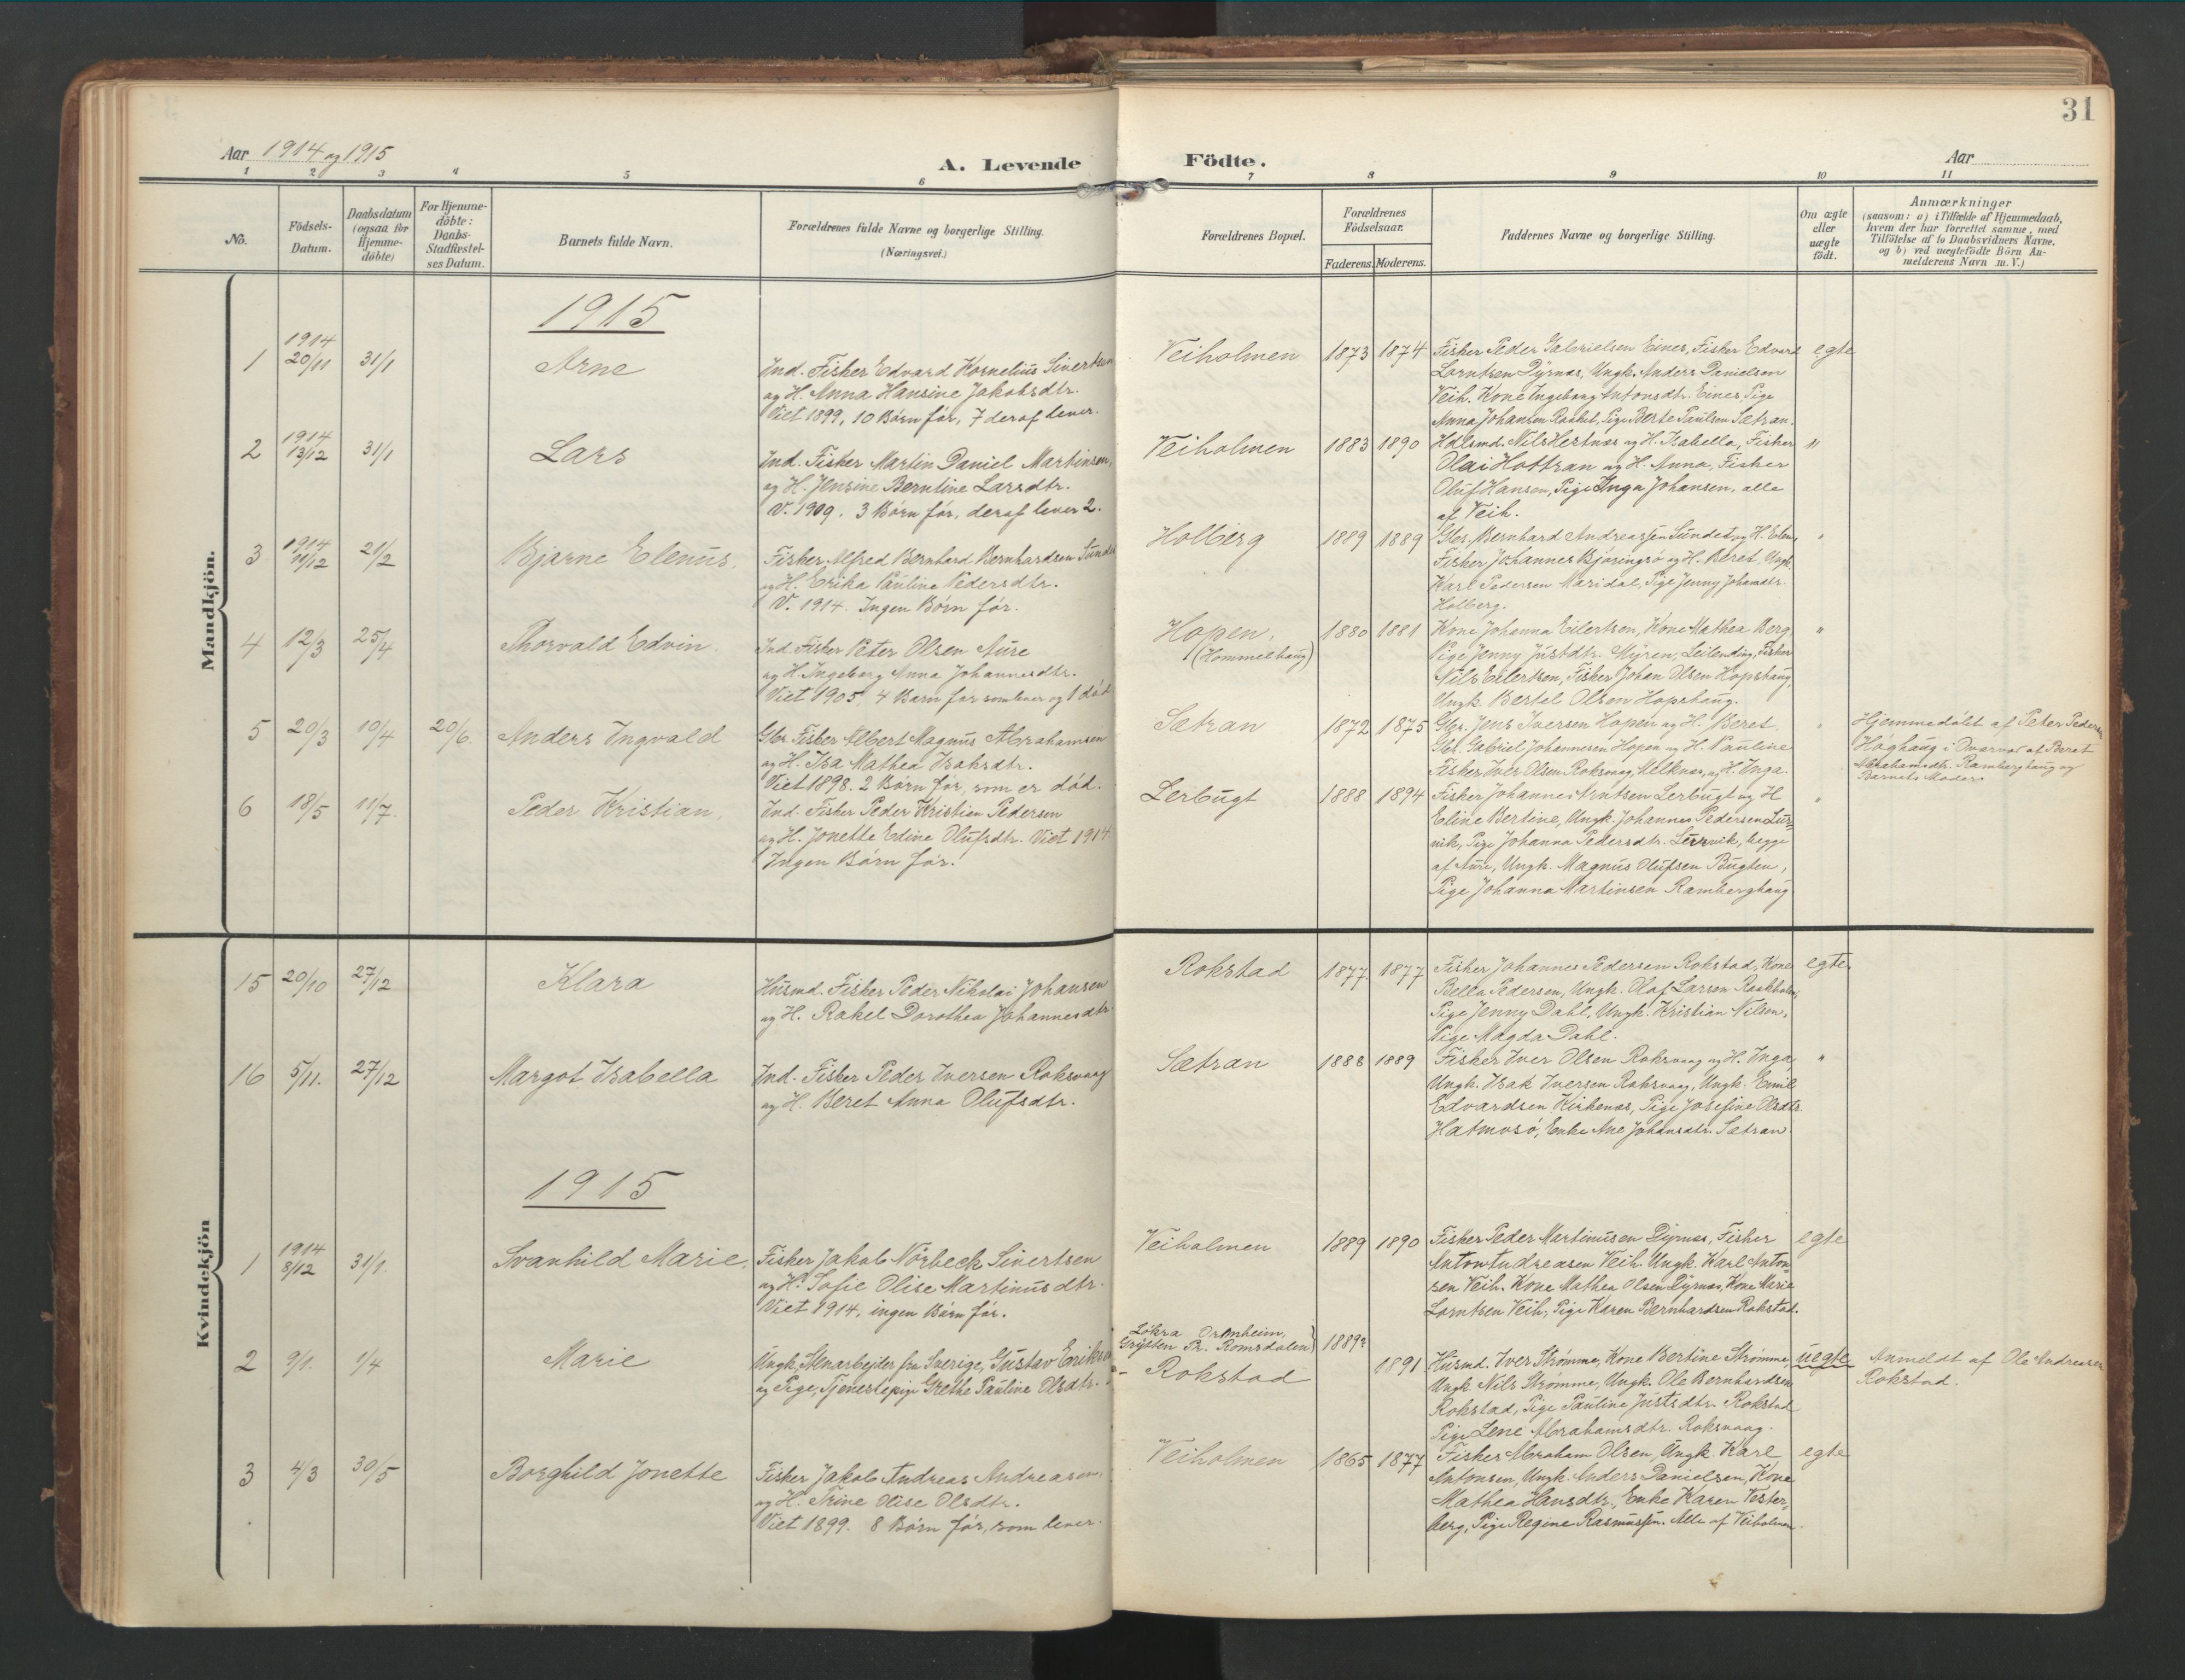 31
Aar 1914 og 1915
A. Levende Födte.
Aar
1 2 3 4 5 6 7 8 9 10 11
No.
Födsels-
Datum.
Daabsdatum
(ogsaa for
Hjemme-
döbte)
For Hjemme-
döbte:
Daabs-
Stadfæstel-
ses Datum.
Barnets fulde Navn.
Forældrenes fulde Navne og borgerlige Stilling.
(Næringsvei.)
Forældrenes Bopæl.
Forældrenes
Födselsaar.
Faderens. Moderens.
Faddernes Navne og borgerlige Stilling.
Om ægte
eller
uægte
födt.
Anmærkninger
(saasom: a) i Tilfælde af Hjemmedaab,
hvem der har forrettet samme, med
Tilföielse af to Daabsvidners Navne,
og b) ved uægtefödte Börn An-
melderens Navn m. V.)
Mandkjön.
1915
1 1914 20/11 31/1 Arne
Ind. Fisker Edvard Kornelius Sivertsen
og H. Anna Hansine Jakobsdtr.
Viet 1899, 10 Børn før, 7 deraf lever.
Veiholmen 1873 1874
Fisker Peder Gabrielsen Eines, Fisker Edvard
Lorntsen Dyrnæs, Ungk. Anders Danielsen
Veih. Kone Ingeborg Antonsdtr. Eines, Pige
Anna Johansen Roskst, Pige Berte Paulsen Sætran.
egte
2 1914 13/12 31/1 Lars
Ind. Fisker Martin Daniel Martinsen,
og H. Jensine Berntine Larsdtr.
V. 1909. 3 Børn før, deraf lever 2.
Veiholmen 1883 1890
Hdlsmd. Nils Hestnæs og H. Isabella, Fisker
Olai Hottran og H. Anna, Fisker
Oluf Hansen, Pige Inga Johansen, alle
af Veih.
"
3 1914 19/12 21/2 Bjarne Elenus.
Fisker Alfred Bernhard Bernhardsen Sundet
og H. Erika Pauline Pedersdtr.
V. 1914. Ingen Børn før.
Holberg 1889 1889
Gbr. Bernhard Andreassen Sundet og H. Elen,
Fisker Johannes Bjøringsø og H. Beret, Ungk.
Karl Pedersen Maridal, Pige Jenny Johansdtr.
Holberg.
"
4 12/3 25/4 Thorvald Edvin.
Ind. Fisker Peter Olsen Aure
og H. Ingeborg Anna Johannesdtr.
Viet 1905, 4 Barn før som lever og 1 død
Hopen.
(Hommelhaug)
1880 1881
Kone Johanna Eilertsen, Kone Mathea Berg,
Pige Jenny Justdtr. Myren, Leilending, Fisker
Nils Eilertsen, Fisker Johan Olsen Hopshaug,
Ungk. Bertel Olsen Hopshaug.
"
5 20/3 10/4 20/6. Anders Ingvald
Gbr. Fisker Albert Magnus Abrahamsen
og H. Isa Mathea Isaksdtr.
Viet 1898. 2 Børn før, som er død.
Sætran 1872 1875
Gbr. Jens Iversen Hopen og H. Beret,
Gbr. Gabriel Johannesen Hopen og H. Pauline
Fisker Iver Olsen Roksvaag, Melknæs, og H. Inga.
"
Hjemmedøbt af Peter Pedersen
Høghaug i Overvær af Beret
Abrahamsdtr. Ramberghaug og
Barnets Moder.
6 18/5 11/7. Peder Kristian.
Ind. Fisker Peder Kristian Pedersen
og H. Jonette Edine Olufsdtr. Viet 1914.
Ingen Børn før.
Lerbugt 1888 1894
Fisker Johannes Arntsen Lerbugt og H
Eline Bertine, Ungk. Johannes Pedersen Lur-
vik, Pige Johanna Pedersdtr. Lurvik, begge
af Aure, Ungk. Magnus Olufsen Bugten,
Pige Johanna Martinsen Ramberghaug
"
Kvindekjön
15 20/10 27/12 Klara
Husmd. Fisker Peder Nikolai Johansen
og H. Rakel Dorothea Johannesdtr.
Rokstad 1877 1877
Fisker Johannes Pedersen Rokstad, Kone
Bella Pedersen, Ungk. Olaf Larsen Raakholm,
Pige Jenny Dahl, Ungk. Kristian Nilsen,
Pige Magda Dahl.
egte.
16 5/11. 27/12 Margot Isabella
Ind. Fisker Peder Iversen Roksvaag
og H. Beret Anna Olufsdtr.
Sætran 1888 1889
Fisker Iver Olsen Roksvaag og H. Inga,
Ungk. Isak Iversen Roksvaag, Ungk. Emil
Edvardsen Kirkenæs, Pige Josefine Olsdtr.
Hatmosø, Enke Ane Johansdtr. Sætran.
"
1915
1 1914 8/12 31/1. Svanhild Marie.
Fisker Jakob Nørbeck Sivertsen
og H. Sofie Olise Martinusdtr.
Viet 1914, ingen Børn før.
Veiholmen 1889 1890
Fisker Peder Martinusen Dyrnæs, Fisker
Anton Andreasen Veih. Ungk. Karl Anton-
sen Veih. Kone Mathea Olsen Dyrnæs, Kone Marie
Lorntsen Veih, Pige Karen Bernhardsen Rokstad.
egte
2 9/1. 1/4 Marie
Ungk. Stenarbejder fra Sverige, Gustav Eriksen
og Pige, Tjenestepige Grethe Pauline Olsdtr.
Løkra Ormheim,
Grytten Pr. Romsdalen
- Rokstad
1889?
1891
Husmd. Iver Strømme, Kone Bertine Strømme,
Ungk. Nils Strømme, Ungk. Ole Bernhardsen
Rokstad, Pige Pauline Justsdtr. Rokstad
Pige Lene Abrahamsdtr. Roksvaag.
uegte
Anmeldt af Ole Andreasen
Rokstad.
3 4/3 30/5 Borghild Jonette
Fisker Jakob Andreas Andreasen,
og H. Trine Olise Olsdtr.
Viet 1899. 8 Børn før, som lever.
Veiholmen 1865 1877
Fisker Abraham Olsen, Ungk. Karl
Antonsen, Ungk. Anders Danielsen, Kone
Mathea Hansdtr., Enke Karen Vester-
berg, Pige Regine Rasmussen. Alle af Veiholmen.
egte